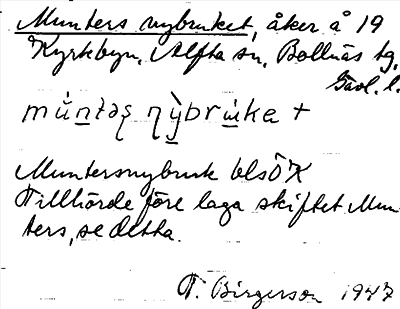 Munters nybruket, åker å 19
Kyrkbyn, Alfta sn, Bollnäs tg,
Gävl. l.
mù̱ntəʂ nỳ̱bru̱ka +
Muntersnybruk blsÖK
Tillhörde före laga skiftet Mun-
ters, se detta.
T. Birgerson 1947